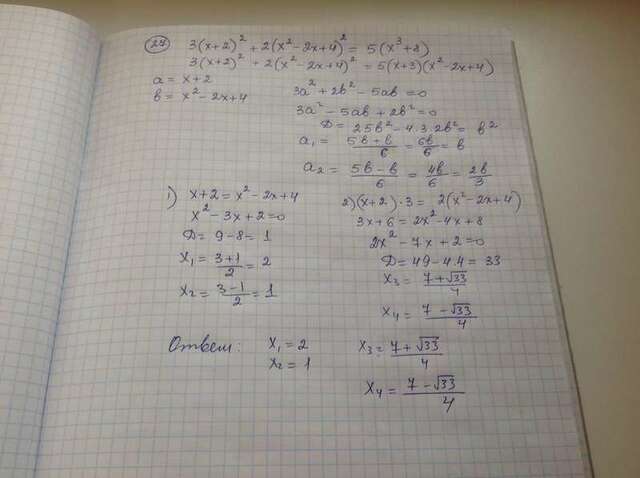 24
3(x+2)² + 2(x²-2x+4)² = 5(x³+8)
3(x+2)² + 2(x²-2x+4)² = 5(x+3)(x²-2x+4)
a = x+2
b = x²-2x+4
3a² + 2b² - 5ab = 0
3a² - 5ab + 2b² = 0
D = 25b² - 4·3·2b² = b²
a₁ = (5b+b)/6 = 6b/6 = b
a₂ = (5b-b)/6 = 4b/6 = 2b/3
1) x+2 = x²-2x+4
x² - 3x + 2 = 0
D = 9-8 = 1
x₁ = (3+1)/2 = 2
x₂ = (3-1)/2 = 1
2) (x+2)·3 = 2(x²-2x+4)
3x+6 = 2x²-4x+8
2x² - 7x + 2 = 0
D = 49-4·4 = 33
x₃ = (7+√33)/4
x₄ = (7-√33)/4
Ответ: x₁ = 2
x₂ = 1
x₃ = (7+√33)/4
x₄ = (7-√33)/4